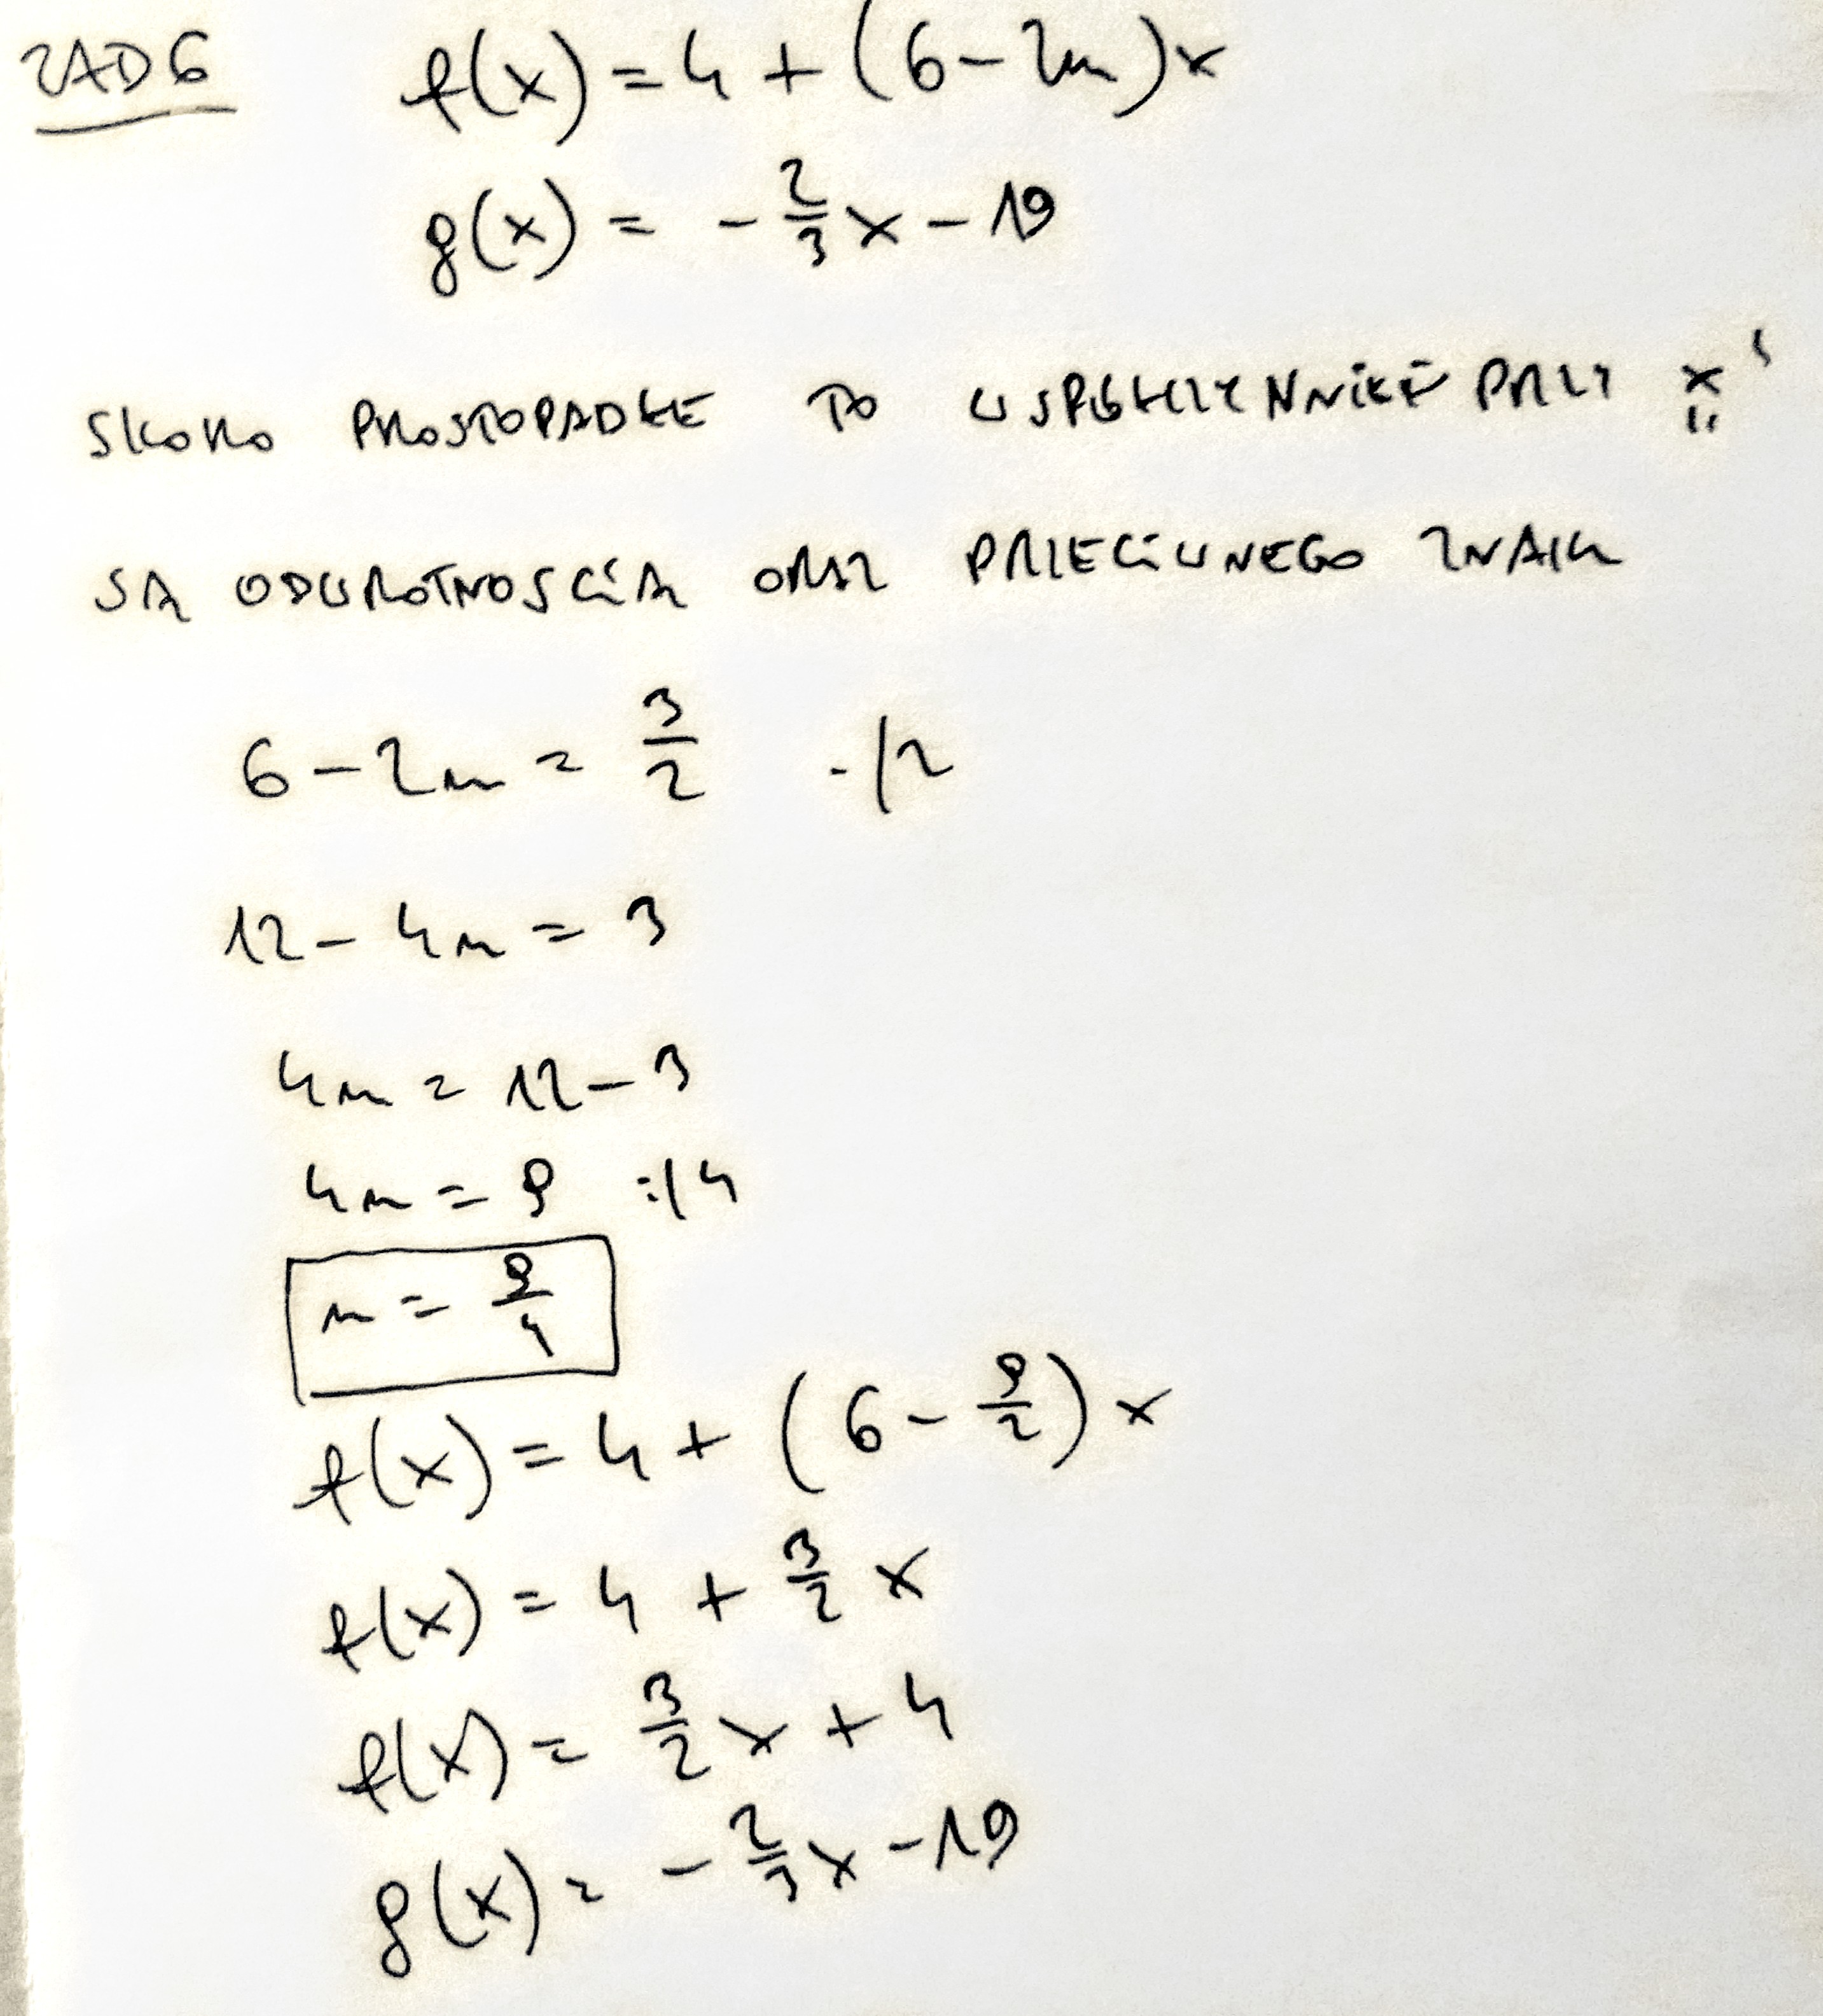 ZAD 6 f(x) = 4 + (6 - 2m)x
g(x) = - 2/3 x - 19
SKORO PROSTOPADŁE TO WSPÓŁCZYNNIKI PRZY "x"
SĄ ODWROTNOŚCIĄ ORAZ PRZECIWNEGO ZNAKU
6 - 2m = 3/2 ·/2
12 - 4m = 3
4m = 12 - 3
4m = 9 :/4
m = 9/4
f(x) = 4 + (6 - 9/2)x
f(x) = 4 + 3/2 x
f(x) = 3/2 x + 4
g(x) = - 2/3 x - 19